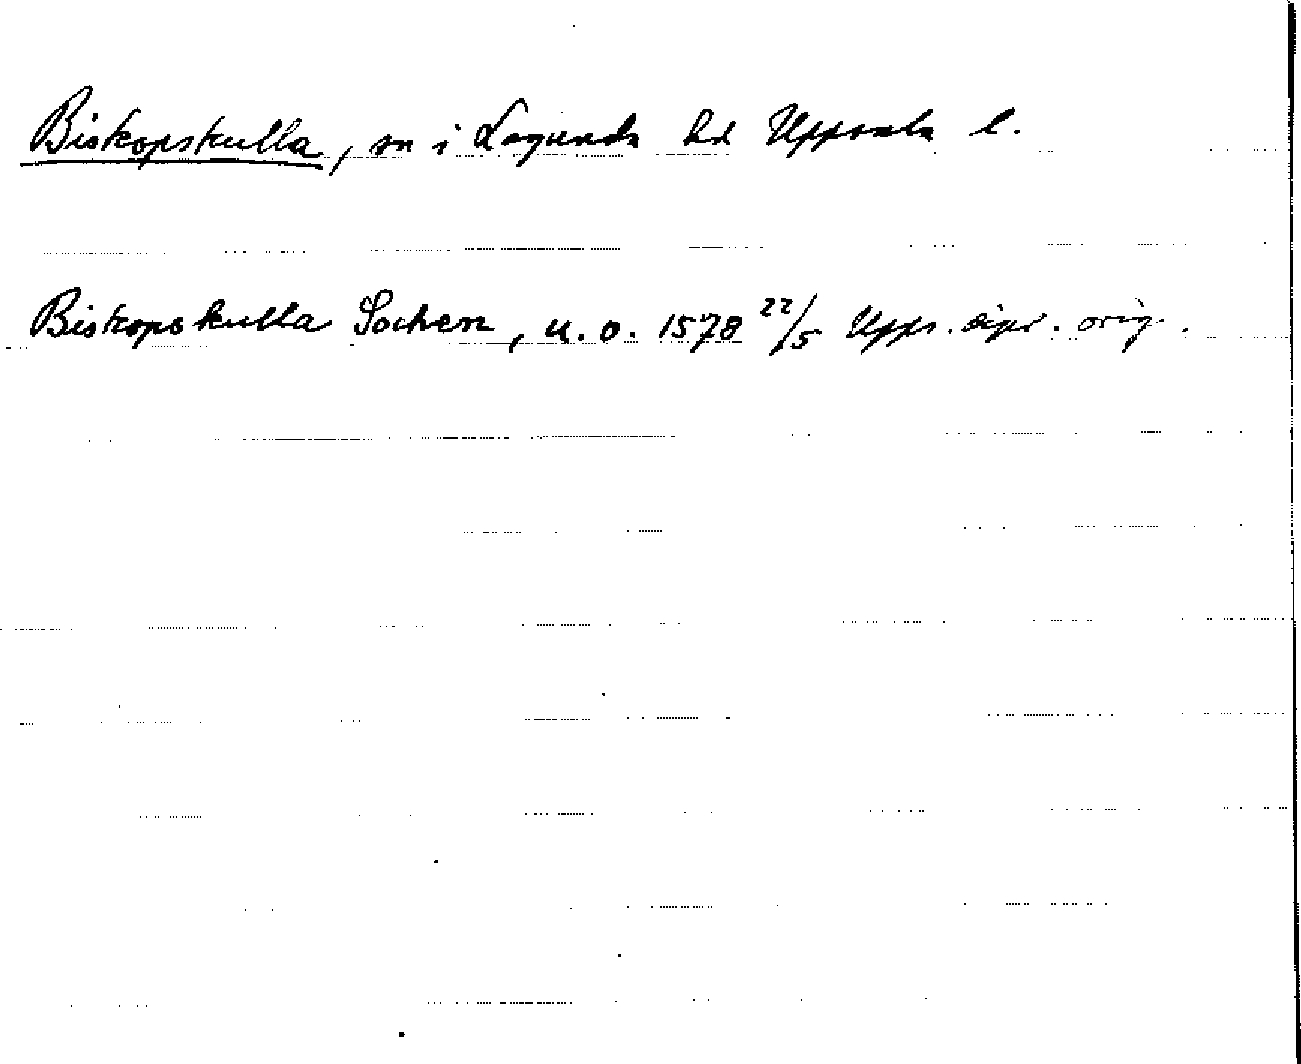 Biskopskulla, sn i Lagunda hd Uppsala l.
Biskopskulla Sochen, u.o. 1578 22/5 Upps. dipl. orig.